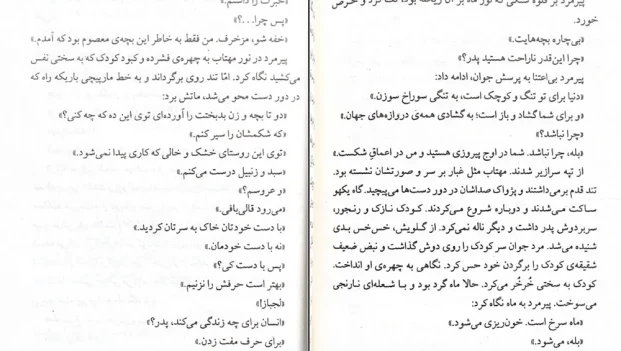 خورد.
«بی‌چاره بچه‌هایت.»
«چرا این‌قدر ناراحت هستید پدر؟»
پیرمرد بی‌اعتنا به پرسش جوان، ادامه داد:
«دنیا برای تو تنگ و کوچک است، به تنگی سوراخ سوزن.»
«و برای شما گشاد و باز است؛ به گشادی همه‌ی دروازه‌های جهان.»
«چرا نباشد؟»
«بله، چرا نباشد. شما در اوج پیروزی هستید و من در اعماقِ شکست.»
از تپه سرازیر شدند. مهتاب مثل غبار بر سر و صورتشان نشسته بود.
تند قدم برمی‌داشتند و پژواک صداشان در دور دست‌ها می‌پیچید. گاه یکهو
ساکت می‌شدند و دوباره شروع می‌کردند. کودک نازک و رنجور،
سر بر دوش پدر داشت و دیگر ناله نمی‌کرد. از گلویش، خس‌خس بدی
شنیده می‌شد. مرد جوان سر کودک را روی دوش گذاشت و نبض ضعیف
شقیقه‌ی کودک را بر گردن خود حس کرد. نگاهی به چهره‌ی او انداخت.
کودک به سختی خُرخُر می‌کرد. حالا ماه گرد بود و با شعله‌ای نارنجی
می‌سوخت. پیرمرد به ماه نگاه کرد:
«ماه سرخ است. خون‌ریزی می‌شود.»
«بله، می‌شود.»
«پس چرا...؟»
«خفه شو، مزخرف. من فقط به خاطر این بچه‌ی معصوم بود که آمدم.»
پیرمرد در نور مهتاب به چهره‌ی فشرده و کبود کودک که به سختی نفس
می‌کشید نگاه کرد. امّا تند روی برگرداند و به خط مارپیچی باریکه راه که
در دور دست محو می‌شد، ماتش برد:
«دو تا بچه و زن بدبخت را آورده‌ای توی این ده که چه کنی؟»
«که شکمشان را سیر کنم.»
«توی این روستای خشک و خالی که کاری پیدا نمی‌شود.»
«سبد و زنبیل درست می‌کنم.»
«و عروسم؟»
«می‌رود قالی‌بافی.»
«با دست خودتان خاک به سرتان کردید.»
«نه با دست خودمان.»
«پس با دست کی؟»
«بهتر است حرفش را نزنیم.»
«لجباز!»
«انسان برای چه زندگی می‌کند، پدر؟»
«برای حرف مفت زدن.»